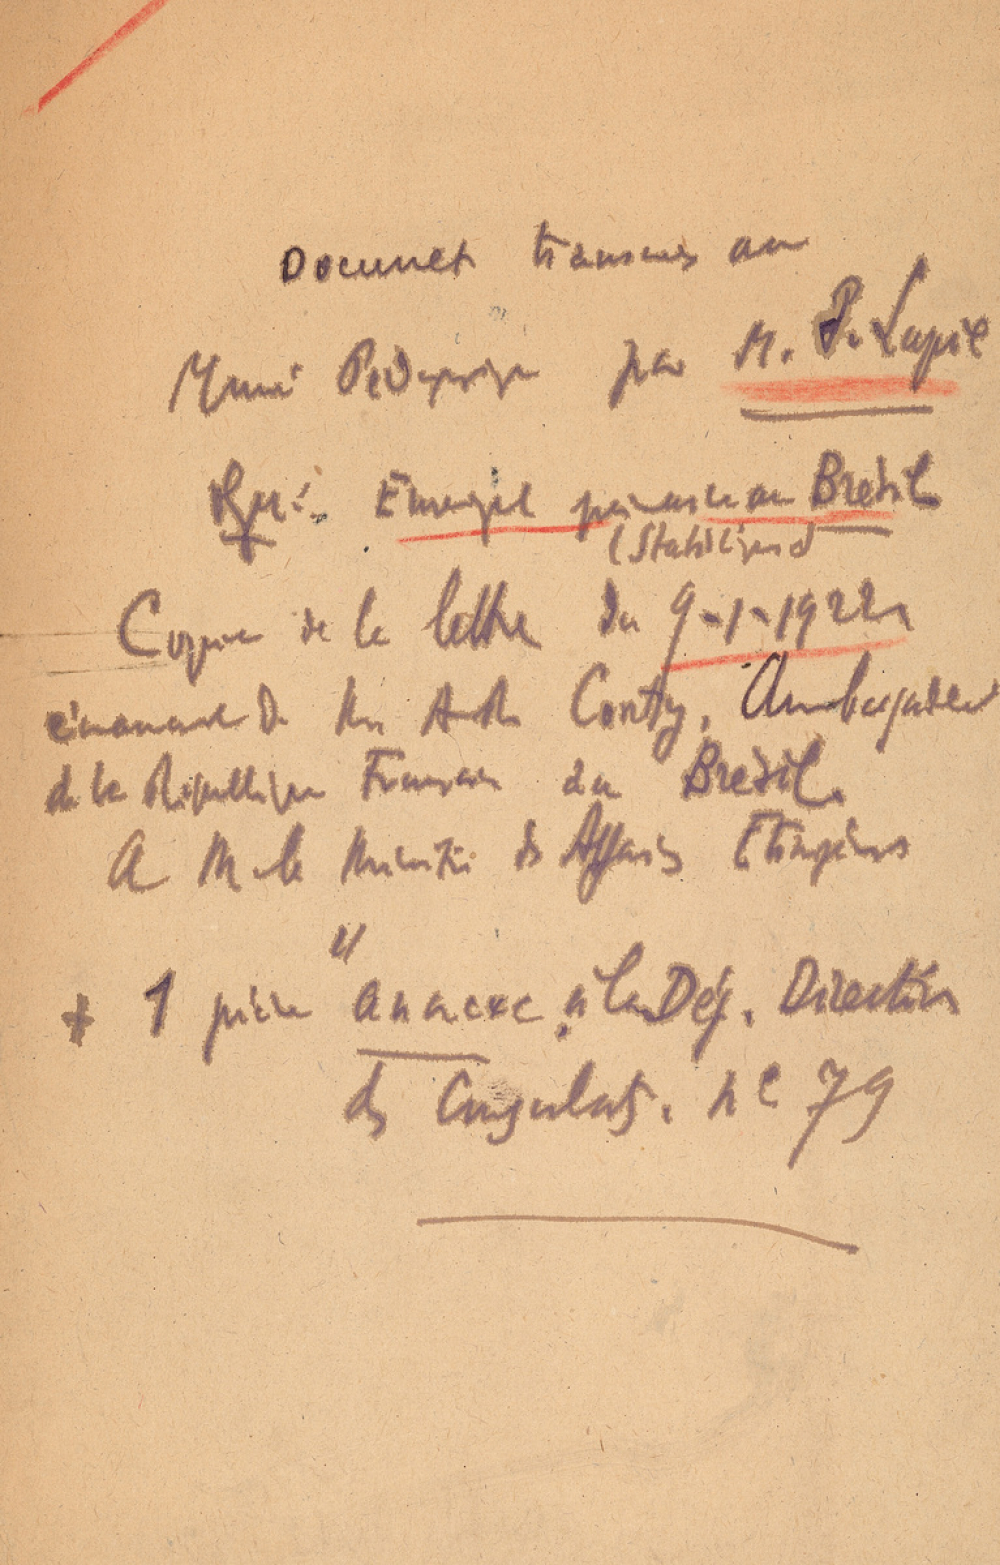 Document transmis au
Musée Pédagogique par M. P. Lapie
Ref: Enseignt primaire au Brésil
(Statistiques)
Copie de la lettre du 9-1-1922
émanant de Conty, Ambassadeur
de la République Française au Brésil.
A M. le Ministre des Affaires Etrangères
+ 1 pièce "annexe à la Dép. Direction
des Consulats. n° 79